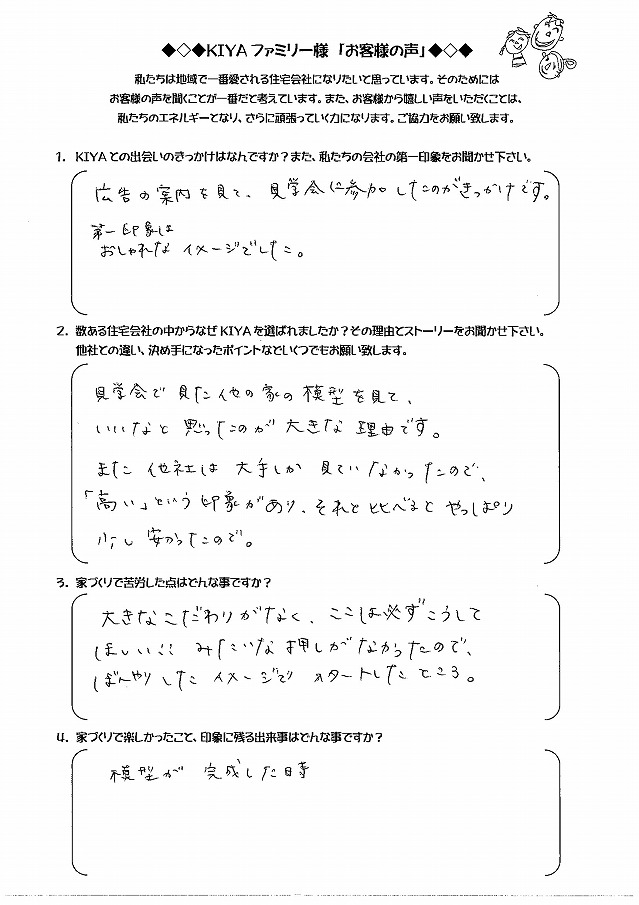 ◆◇◆KIYA ファミリー様 「お客様の声」◆◇◆
私たちは地域で一番愛される住宅会社になりたいと思っています。そのためには
お客様の声を聞くことが一番だと考えています。また、お客様から嬉しい声をいただくことは、
私たちのエネルギーとなり、さらに頑張っていく力になります。ご協力をお願い致します。
1. KIYAとの出会いのきっかけはなんですか?また、私たちの会社の第一印象をお聞かせ下さい。
広告の案内を見て、見学会に参加したのがきっかけです。
第一印象は
おしゃれなイメージでした。
2. 数ある住宅会社の中からなぜKIYAを選ばれましたか?その理由とストーリーをお聞かせ下さい。
他社との違い、決め手になったポイントなどいくつでもお願い致します。
見学会で見た他の家の模型を見て、
いいなと思ったのが大きな理由です。
また他社は大手しか見ていなかったので、
「高い」という印象があり、それと比べるとやっぱり
少し安かったので。
3. 家づくりで苦労した点はどんな事ですか?
大きなこだわりがなく、ここは必ずこうして
ほしい!!みたいな押しがなかったので、
ぼんやりしたイメージでスタートしたところ。
4. 家づくりで楽しかったこと、印象に残る出来事はどんな事ですか?
模型が完成した時